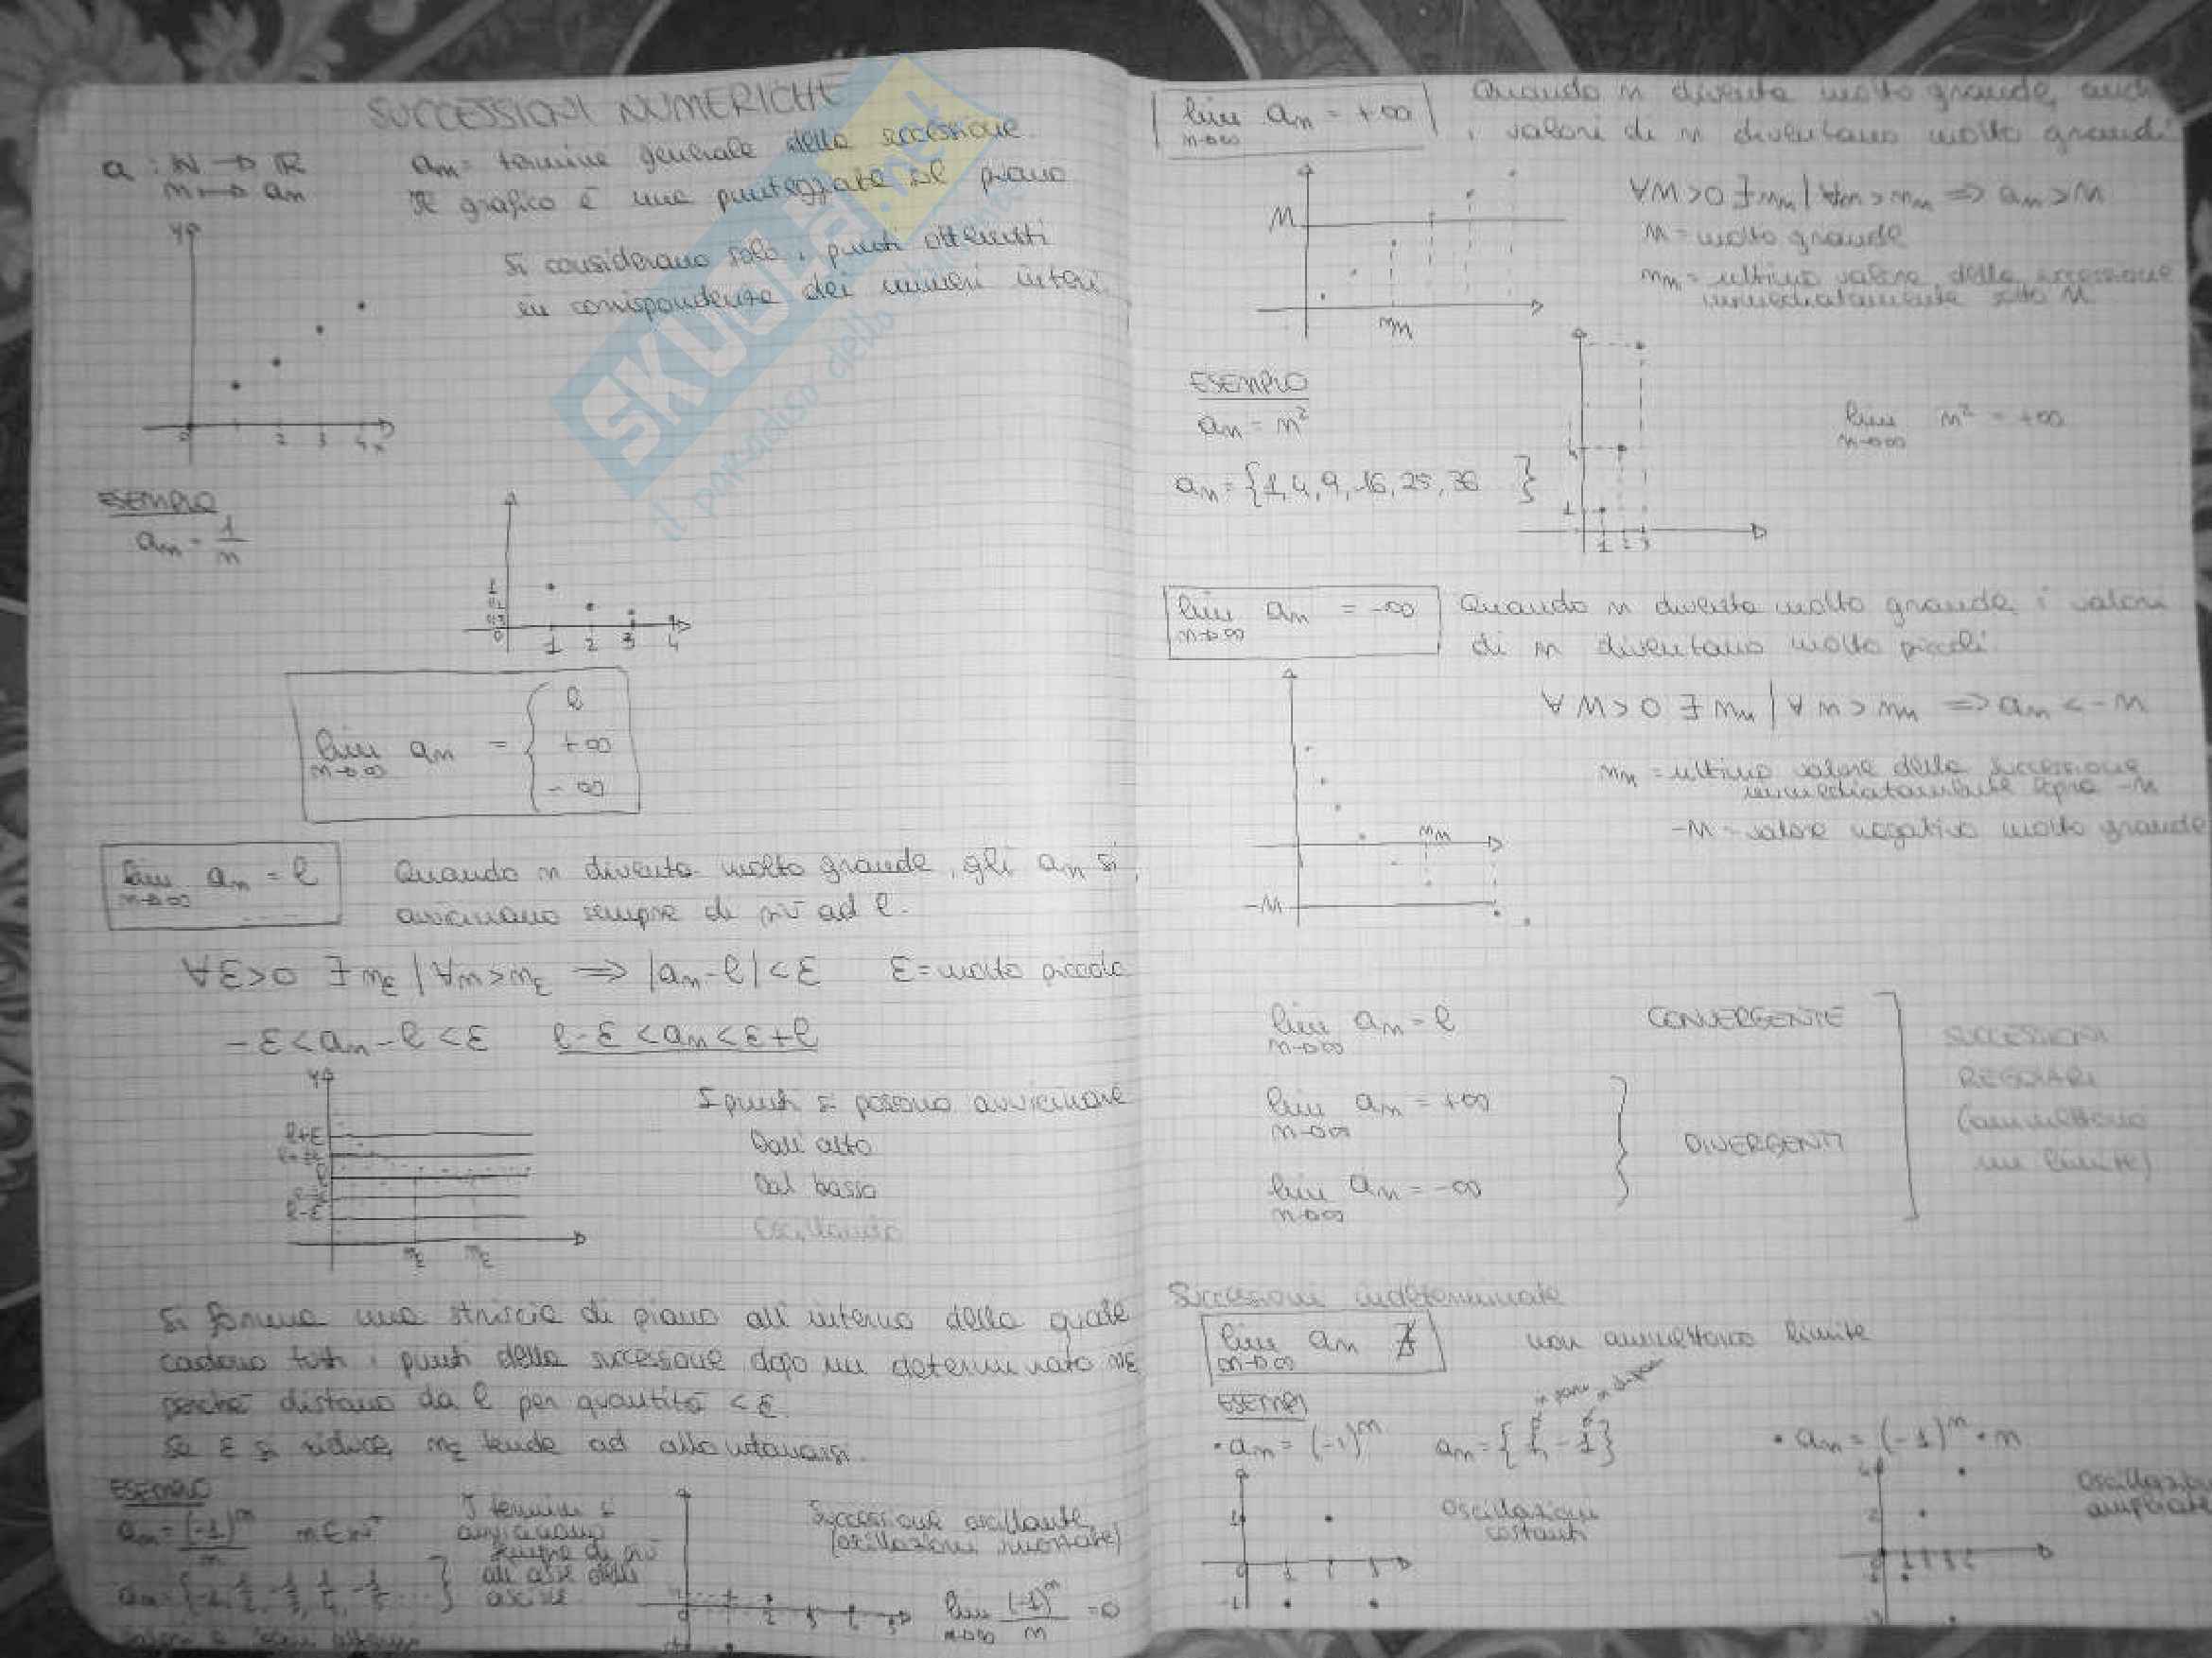 SUCCESSIONI NUMERICHE
a : N → R
n → an
an = termine generale della successione
Il grafico è una punteggiata sul piano
Si considerano solo i punti ottenuti
in corrispondenza dei numeri interi.
y
0 2 3 4 x
ESEMPIO
an = 1/n
1
0
1 2 3 4
lim n→∞ an = { l
+∞
-∞
lim n→∞ an = l
Quando n diventa molto grande, gli an si
avvicinano sempre di più ad l.
∀ε>0 ∃ nε | ∀n>nε ⟹ |an-l|<ε ε=molto piccolo
-ε<an-l<ε l-ε<an<ε+l
y
l+ε
l
l-ε
nε nε
I punti si possono avvicinare
Dall'alto
Dal basso
Oscillando
Si forma una striscia di piano all'interno della quale
cadono tutti i punti della successione dopo un determinato nε
perché distano da l per quantità <ε.
Se ε si riduce, nε tende ad allontanarsi.
ESEMPIO
an = (-1)^n/n n∈N+
an = {-1, 1/2, -1/3, 1/4, -1/5 ...}
I termini si
avvicinano
sempre di più
all'asse delle
ascisse
Successione oscillante
(oscillazioni smorzate)
lim n→∞ (-1)^n/n = 0
lim n→∞ an = +∞
Quando n diventa molto grande, anche
i valori di n diventano molto grandi
M
nM
∀M>0 ∃ nM | ∀n>nM ⟹ an>M
M = molto grande
nM = ultimo valore della successione
immediatamente sotto M
ESEMPIO
an = n²
an = {1, 4, 9, 16, 25, 36 }
4
1
1 2 3
lim n→∞ n² = +∞
lim n→∞ an = -∞
Quando n diventa molto grande i valori
di n diventano molto piccoli.
∀M>0 ∃ nM | ∀n>nM ⟹ an<-M
nM = ultimo valore della successione
immediatamente sopra -M
-M = valore negativo molto grande
nM
-M
lim n→∞ an = l CONVERGENTE
lim n→∞ an = +∞
lim n→∞ an = -∞
DIVERGENTI
SUCCESSIONI
REGOLARI
(ammettono
un limite)
Successioni indeterminate
lim n→∞ an ∄
non ammettono limite
ESEMPI
• an = (-1)^n
an = {1, -1}
n pari
n dispari
• an = (-1)^n • n
Oscillazioni
costanti
1
0
-1
Oscillazioni
SKUOLA.net
il paradiso dello studente